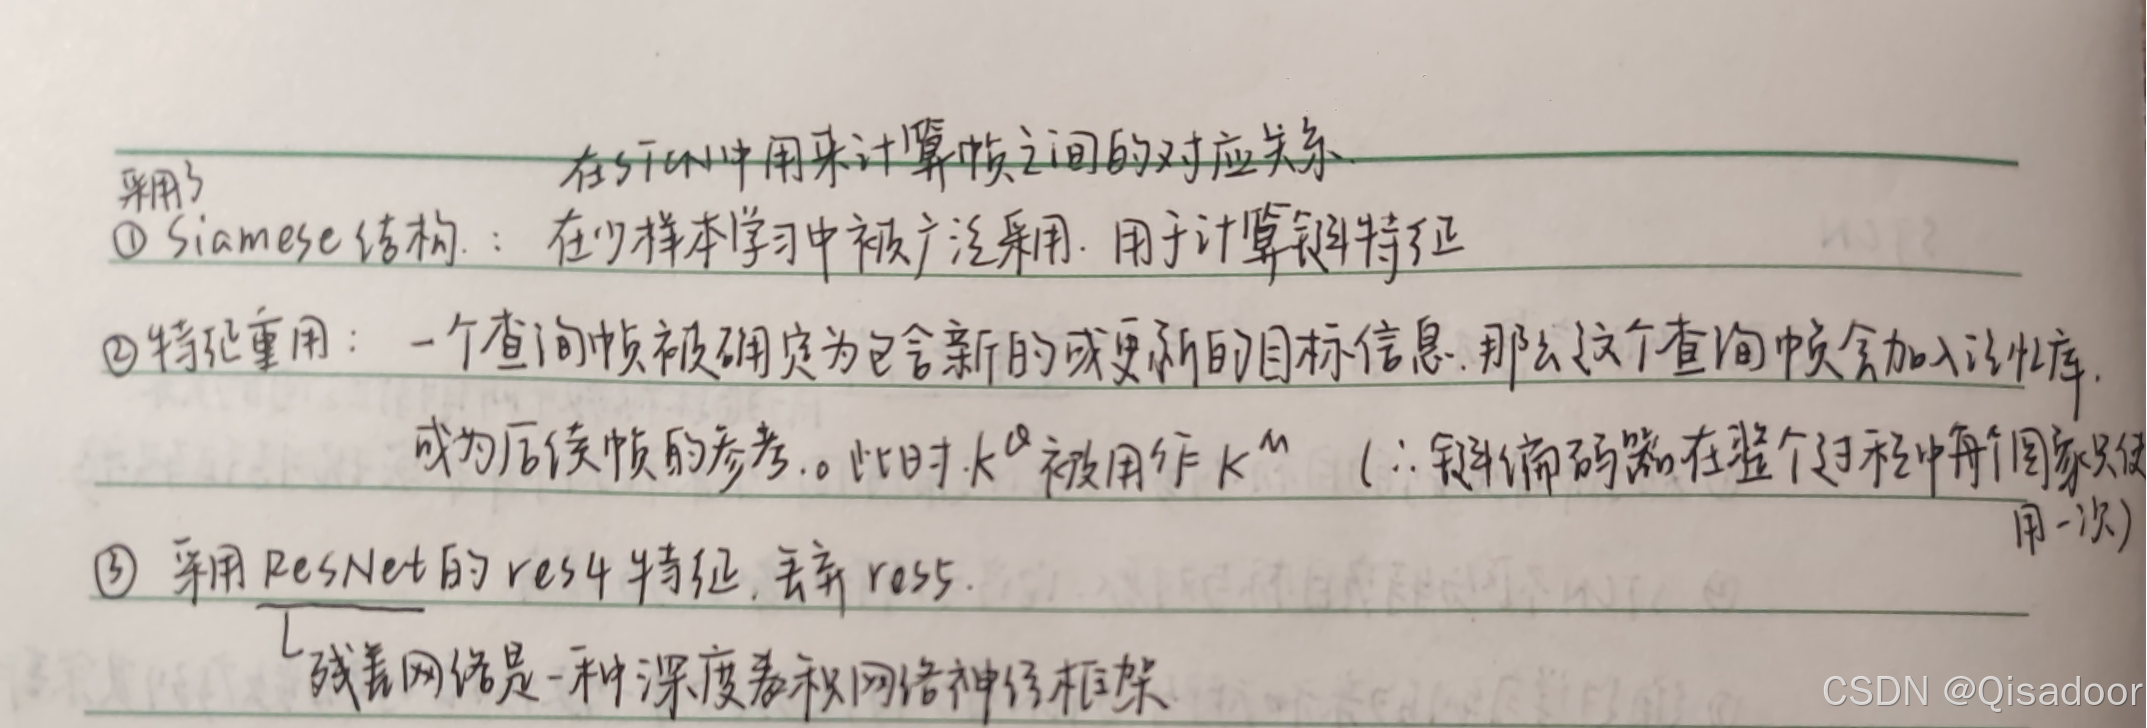 在STCN中用来计算帧之间的对应关系.
采用了
① Siamese结构.: 在少样本学习中被广泛采用. 用于计算键特征
② 特征重用: 一个查询帧被确定为包含新的或更新的目标信息.那么这个查询帧会加入记忆库.
成为后续帧的参考.。此时.K^Q 被用作 K^M (∴键编码器在整个过程中每个图象只使
用一次)
③ 采用ResNet的res4特征,丢弃res5.
残差网络是一种深度卷积网络神经框架
CSDN @Qisadoor